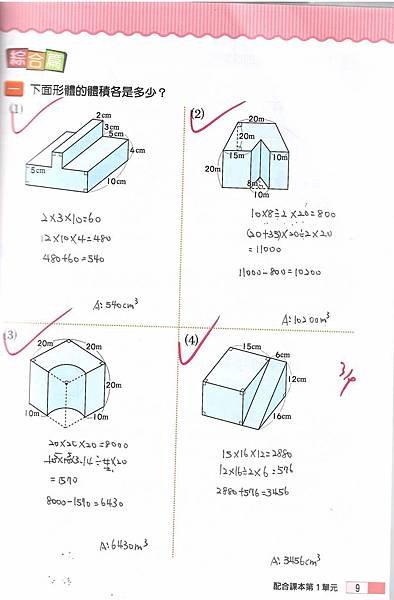 綜合篇
一 下面形體的體積各是多少？
(1)
2cm
3cm
5cm
4cm
5cm
10cm
2×3×10=60
12×10×4=480
480+60=540
A:540cm³
(2)
20m
20m
15m
10m
20m
8m
10m
10×8÷2×20=800
(20+35)×20÷2×20
=11000
11000-800=10200
A:10200m³
(3)
20m
20m
20m
10m
10m
20×20×20=8000
=1570
8000-1570=6430
A:6430m³
(4)
15cm
6cm
12cm
16cm
15×16×12=2880
12×16÷2×6=576
2880+576=3456
A:3456cm³
配合課本第1單元 9